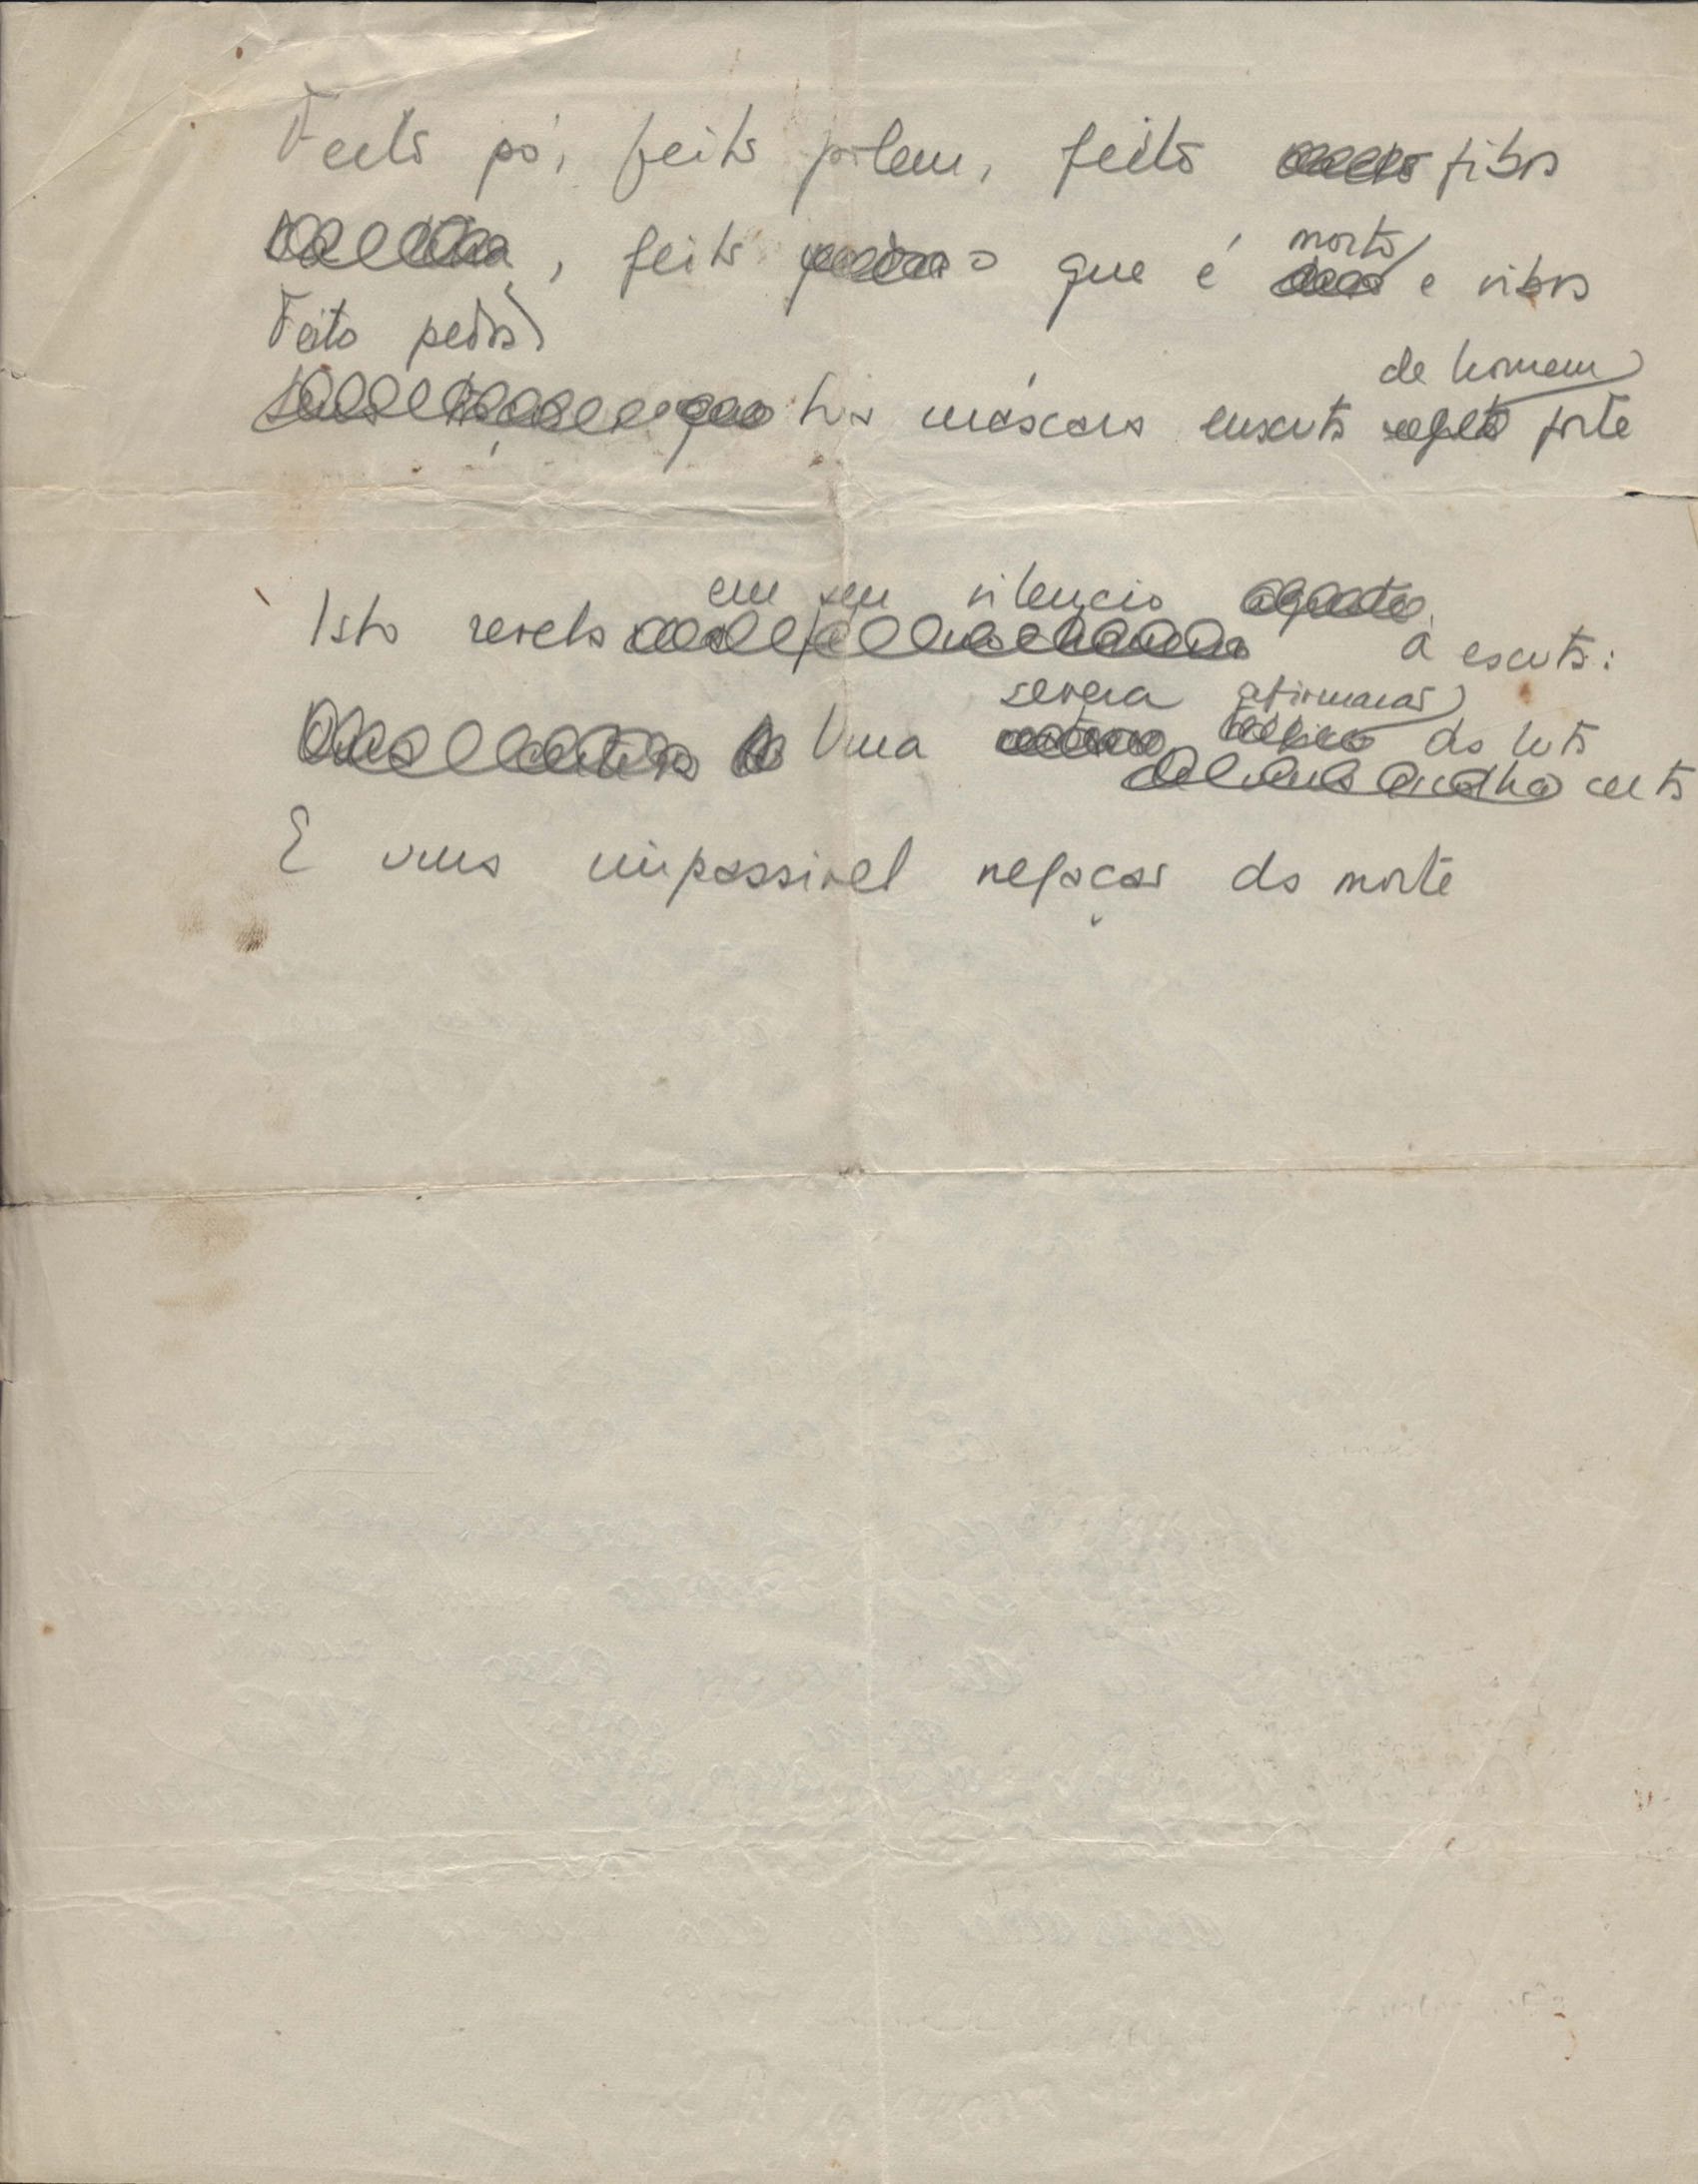 Feito pó, feito pólem, feito fibra
, feito o que é morto e vibra
Feito pedra
tua máscara enxuta de homem forte
Isto revela em seu silencio à escuta:
Uma severa afirmacao da luta
E uma impassivel negaçao da morte